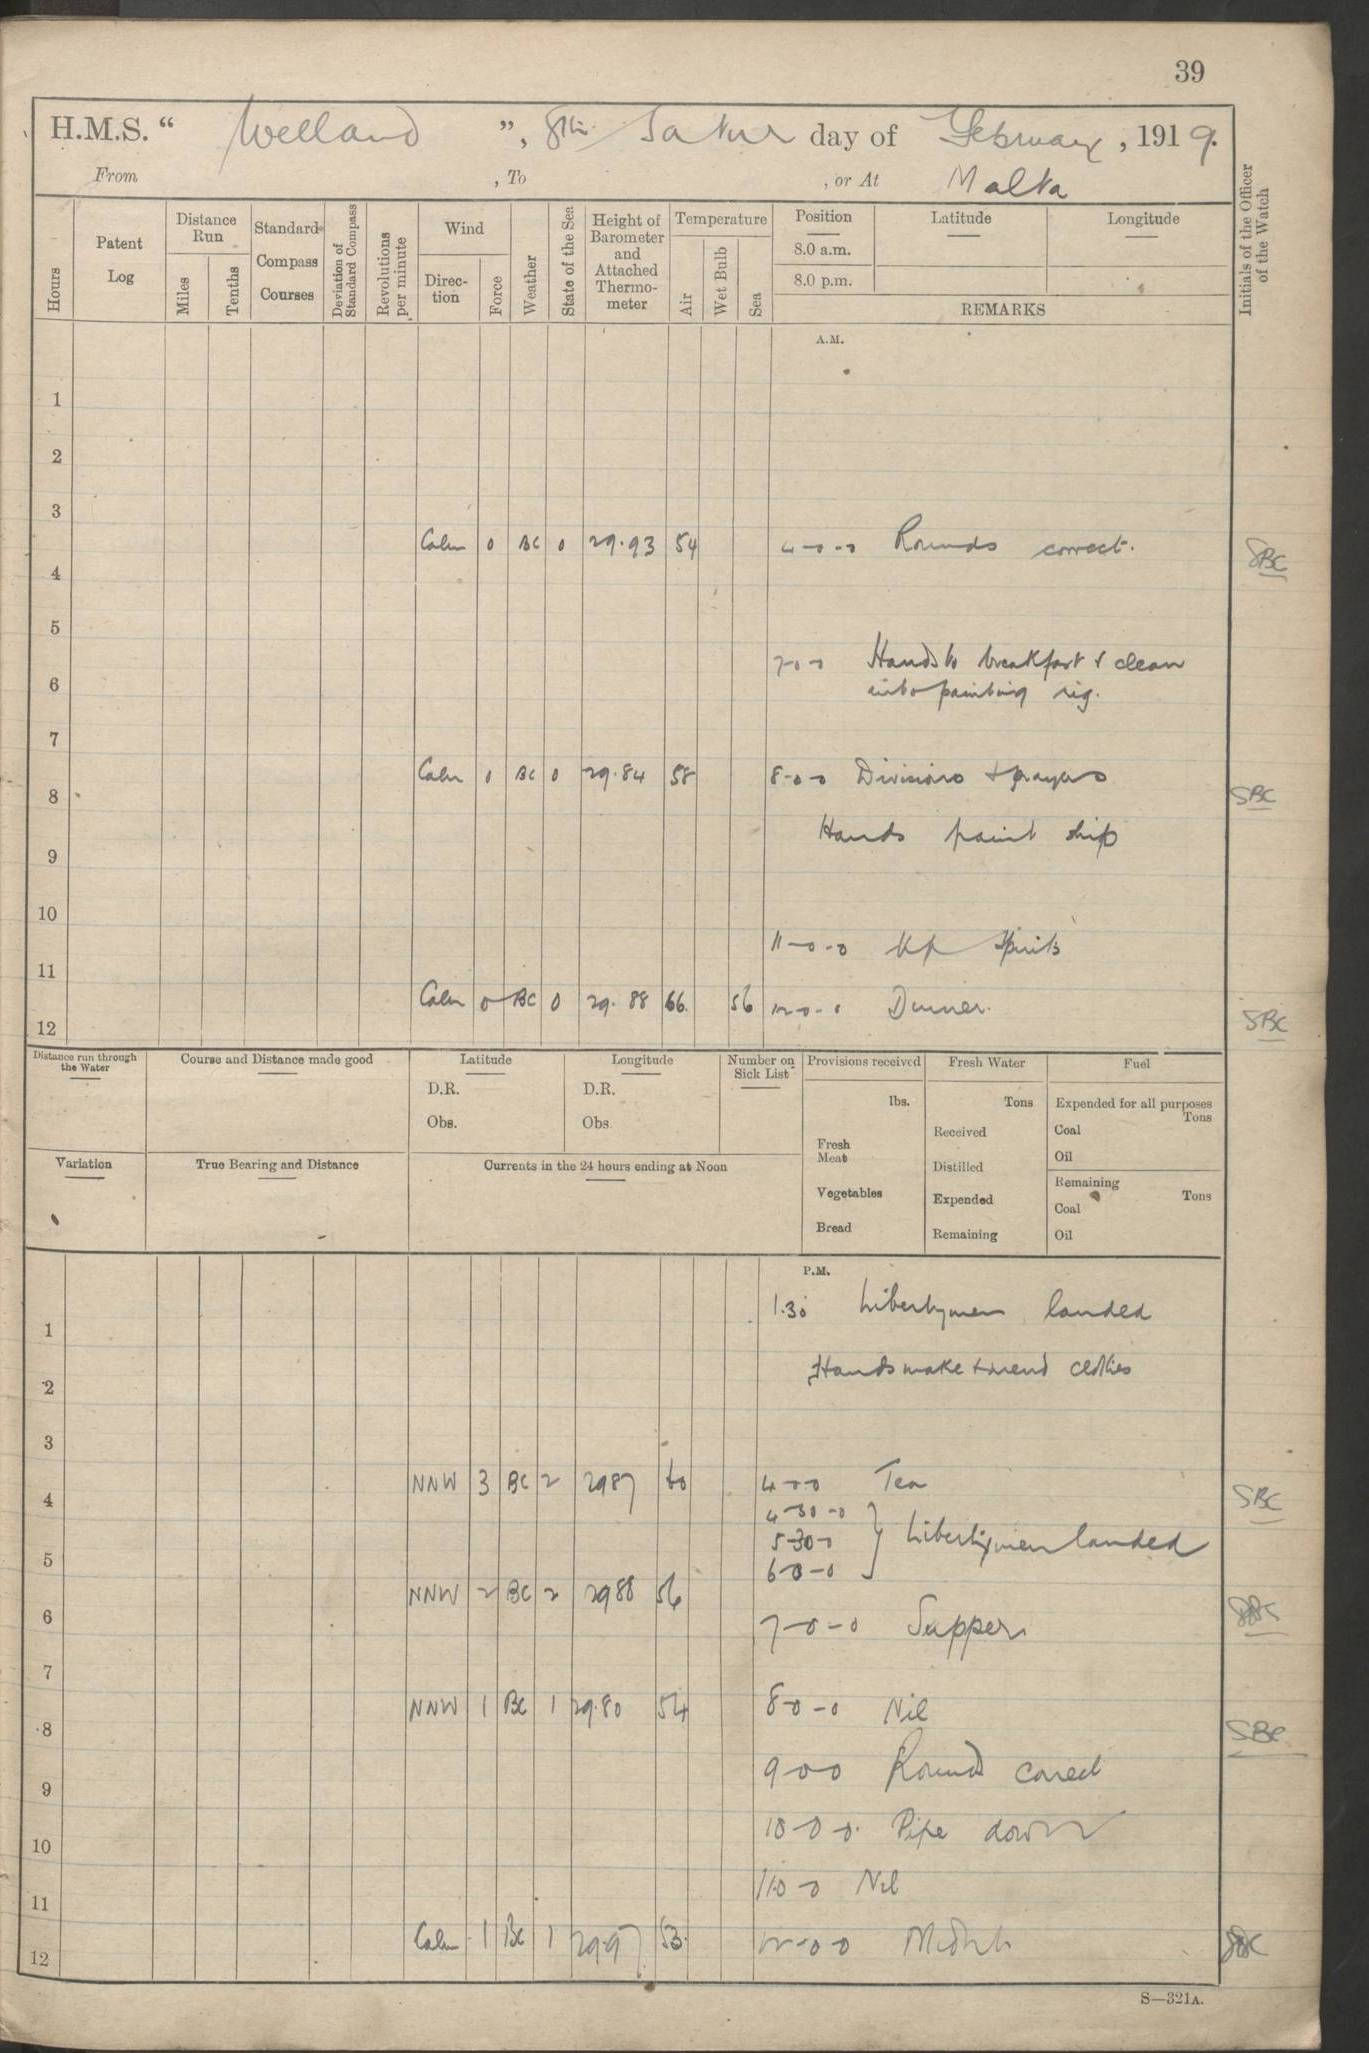 39
H.M.S. “ Welland ”, 8th Satur day of February, 1919.
From , To , or At Malta
Hours
Patent Log
Distance Run
Miles
Tenths
Standard Compass Courses
Deviation of Standard Compass
Revolutions per minute
Wind
Direc-tion
Force
Weather
State of the Sea
Height of Barometer and Attached Thermo-meter
Temperature
Air
Wet Bulb
Sea
Position
8.0 a.m.
8.0 p.m.
Latitude
Longitude
REMARKS
Initials of the Officer of the Watch
A.M.
1
2
3
Calm 0 BC 0 29.93 54 4-0-0 Rounds correct. SBC
4
5
7-0-0 Hands to breakfast & clean
into painting rig.
6
7
Calm 0 BC 0 29.84 58 8-0-0 Divisions & prayers
8 SBC
Hands paint ship
9
10
11-0-0 Up Spirits
11
Calm 0 BC 0 29.88 66 56 12-0-0 Dinner.
12 SBC
Distance run through the Water
Course and Distance made good
Latitude
D.R.
Obs.
Longitude
D.R.
Obs
Number on Sick List
Provisions received
lbs.
Fresh Meat
Vegetables
Bread
Fresh Water
Tons
Received
Distilled
Expended
Remaining
Fuel
Expended for all purposes
Tons
Coal
Oil
Remaining
Tons
Coal
Oil
Variation
True Bearing and Distance
Currents in the 24 hours ending at Noon
P.M.
1.30 Libertymen landed
1
Hands make & mend clothes
2
3
NNW 3 BC 2 2987 60 4-0-0 Tea
4 SBC
4-30-0
5-30-0 Libertymen landed
6-0-0
5
NNW 2 BC 2 2988 56
6 SBC
7-0-0 Supper
7
NNW 1 BC 1 29.80 54 8-0-0 Nil
8 SBC
9-0-0 Rounds correct
9
10-0-0. Pipe down
10
11-0-0 Nil
11
Calm 1 BC 1 29.97 53. 12-0-0
12 SBC
S—321A.